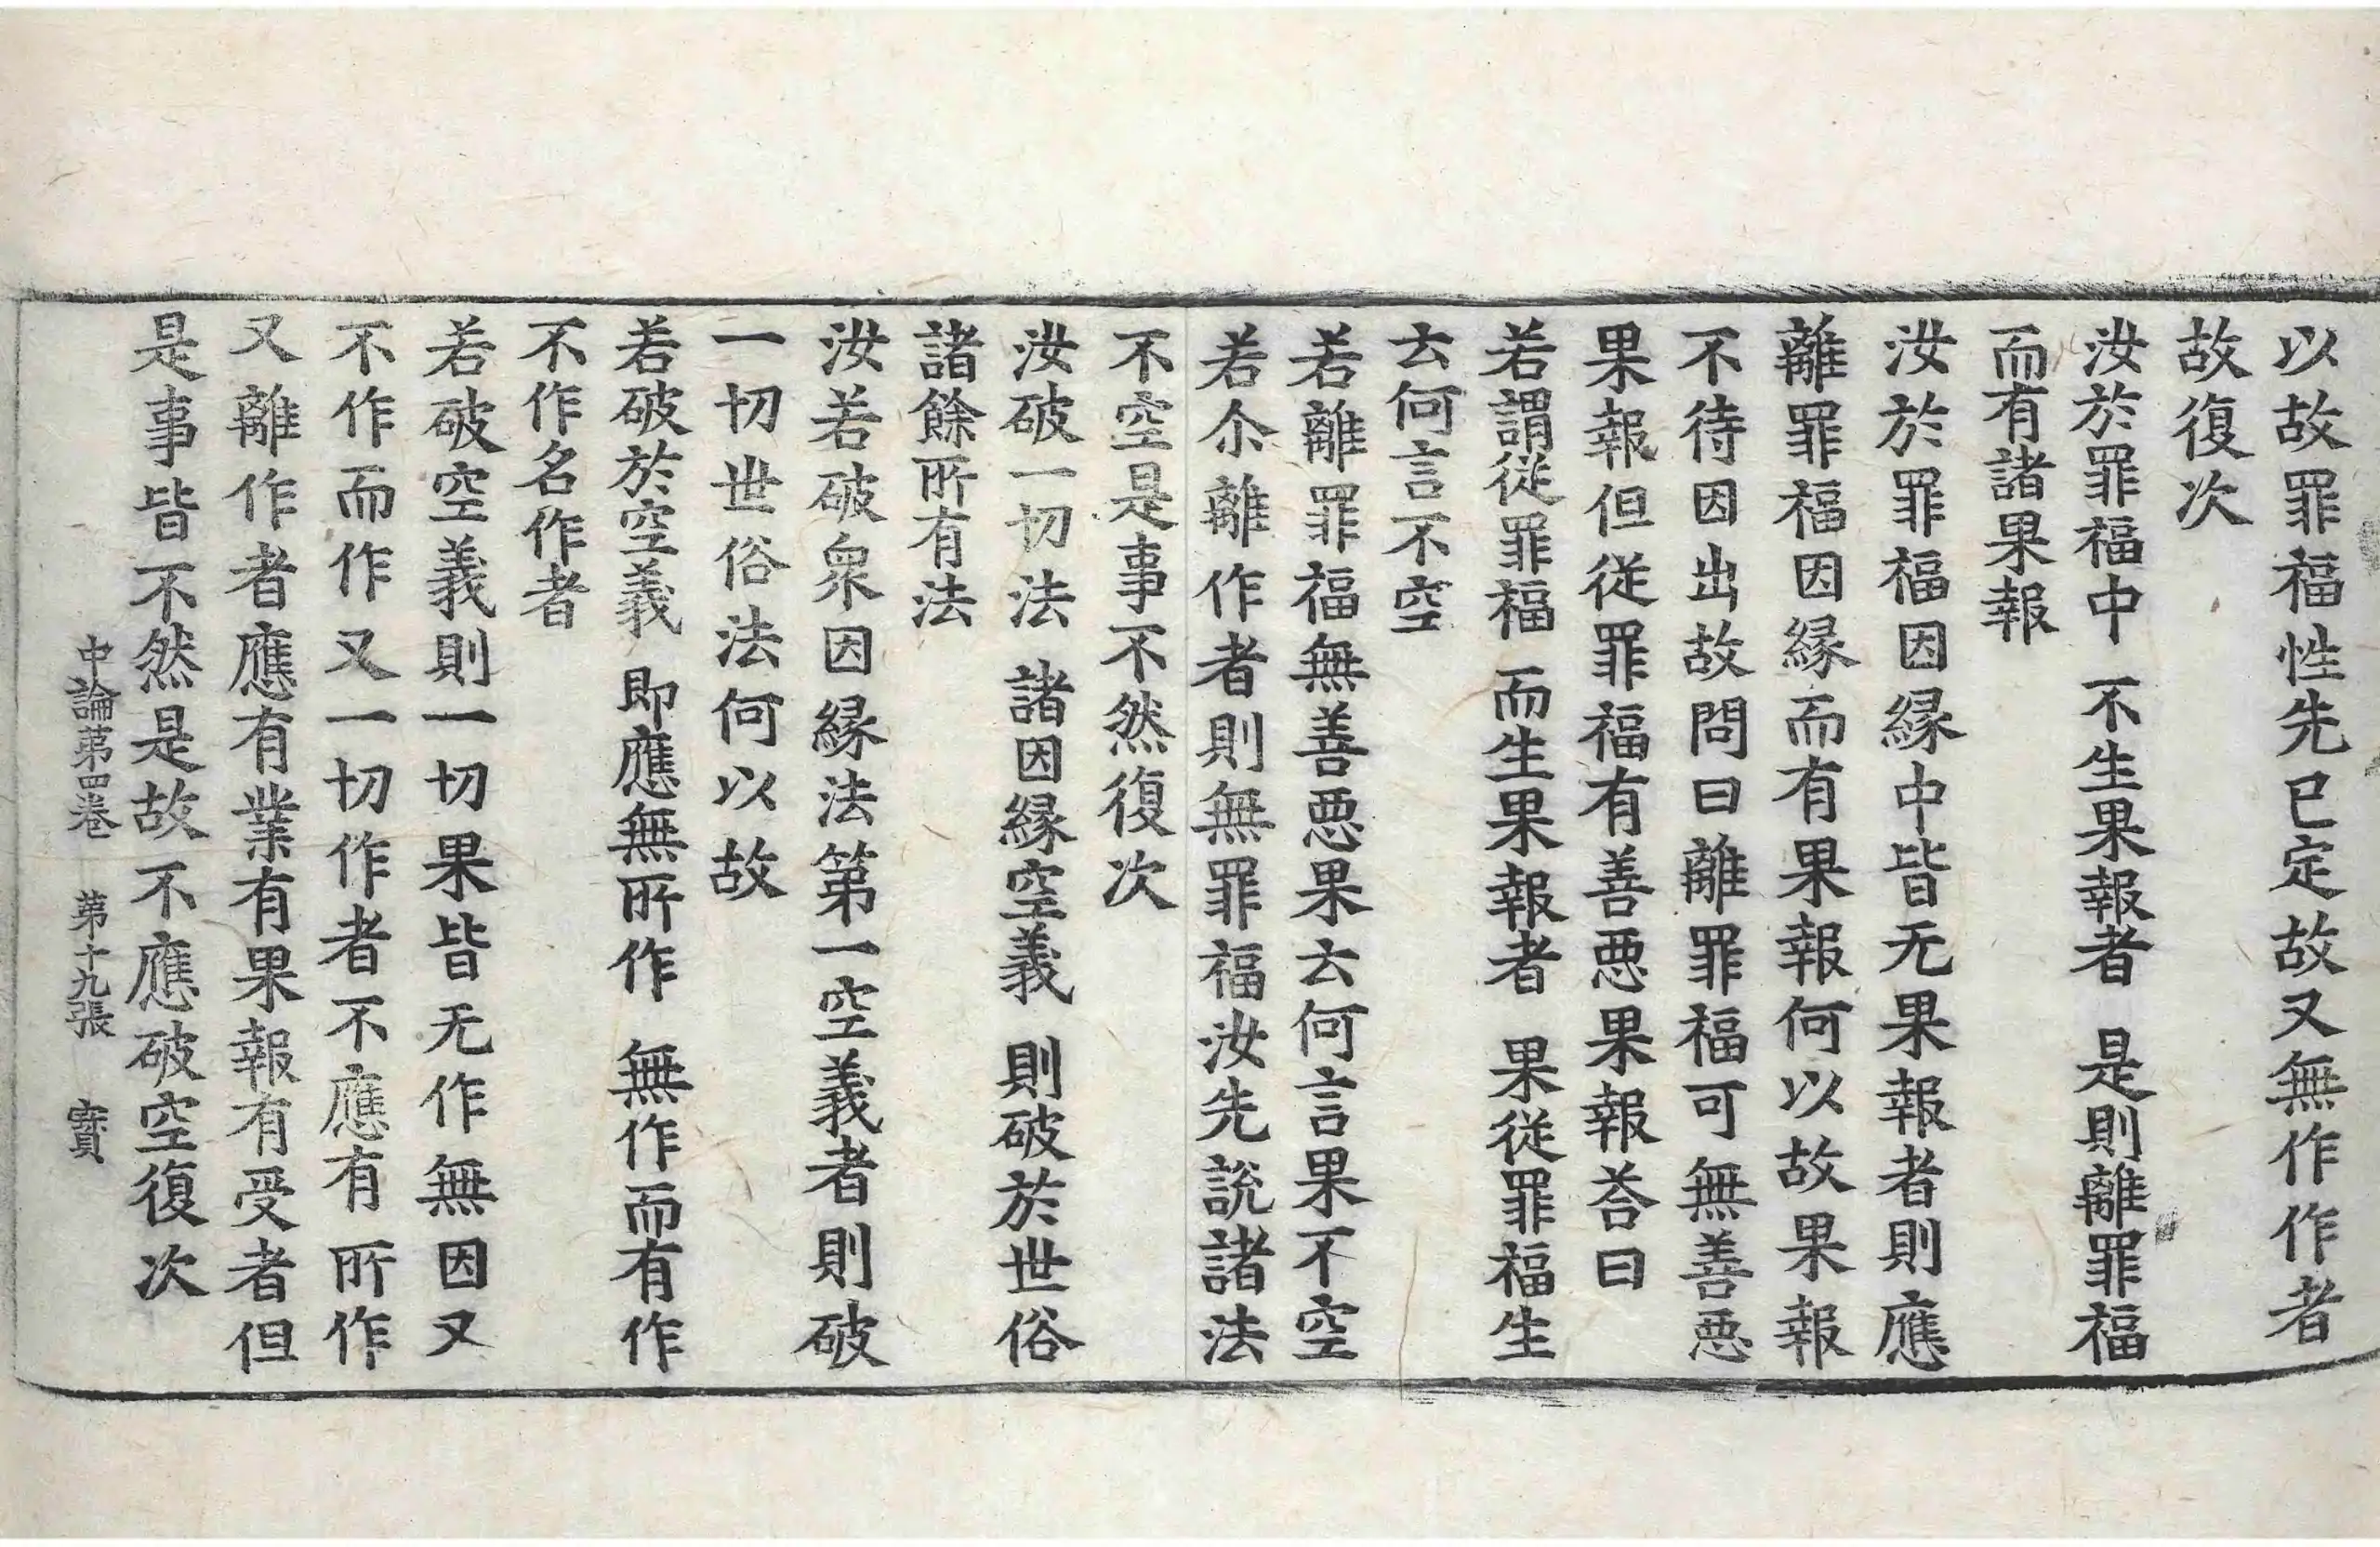 以故罪福性先已定故又無作作者
故復次
汝於罪福中　不生果報者　是則離罪福
而有諸果報
汝於罪福因縁中皆无果報者則應
離罪福因縁而有果報何以故果報
不待因出故問曰離罪福可無善惡
果報但從罪福有善惡果報荅曰
若謂從罪福　而生果報者　果從罪福生
云何言不空
若離罪福無善惡果云何言果不空
若尒離作者則無罪福汝先說諸法
不空是事不然復次
汝破一切法　諸因縁空義　則破於世俗
諸餘所有法
汝若破衆因縁法第一空義者則破
一切世俗法何以故
若破於空義　即應無所作　無作而有作
不作名作者
若破空義則一切果皆无作無因又
不作而作又一切作者不應有所作
又離作者應有業有果報有受者但
是事皆不然是故不應破空復次
中論第四卷　第十九張　寳